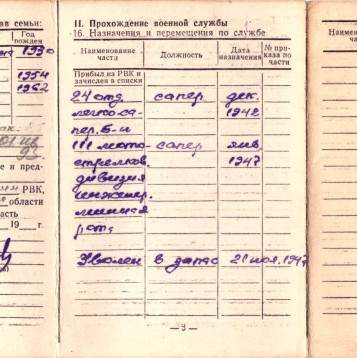 ав семьи:
Год
рожден
1930
1954
1962
е и пред-
РВК,
области
асть
19 г.
II. Прохождение военной службы
16. Назначения и перемещения по службе
Наименование части
Должность
Дата назначения
№ приказа по части
Прибыл из РВК и
зачислен в списки
24 отд. сапер дек.
легко са- 1942
пер. б-н
111 мото- сапер янв.
стрелков. 1947
дивизия
инженер.
минная
рота
Уволен в запас 21 ноя. 1947
— 9 —
Наимено
част